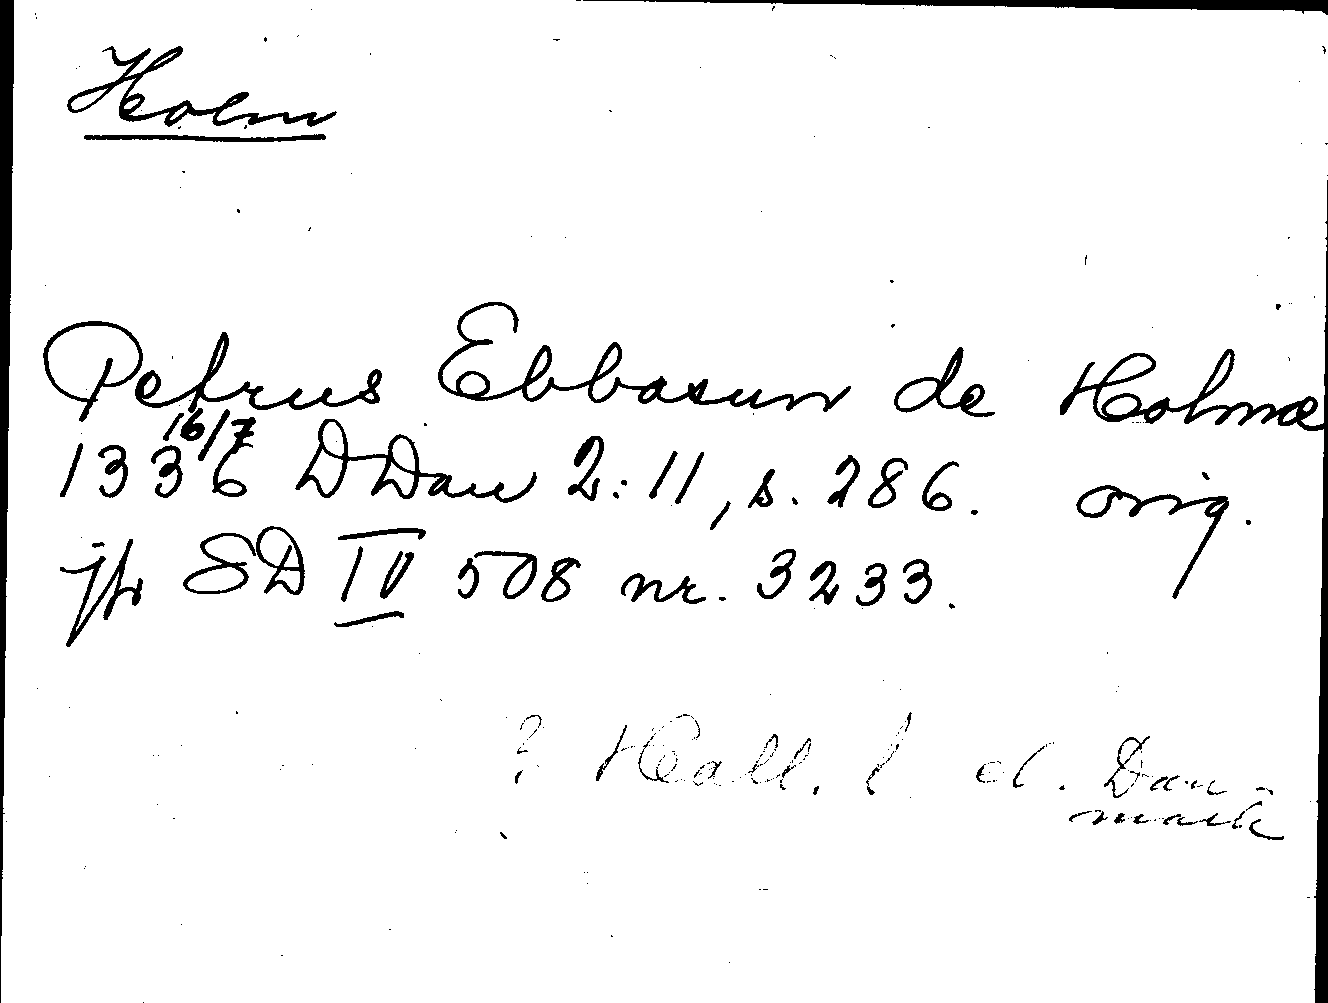 Holm
Petrus Ebbasun de Holmæ
16/7
1336 DDan 2:11, s. 286. orig.
jfr SD IV 508 nr. 3233.
? Hall. l el. Dan-
mark